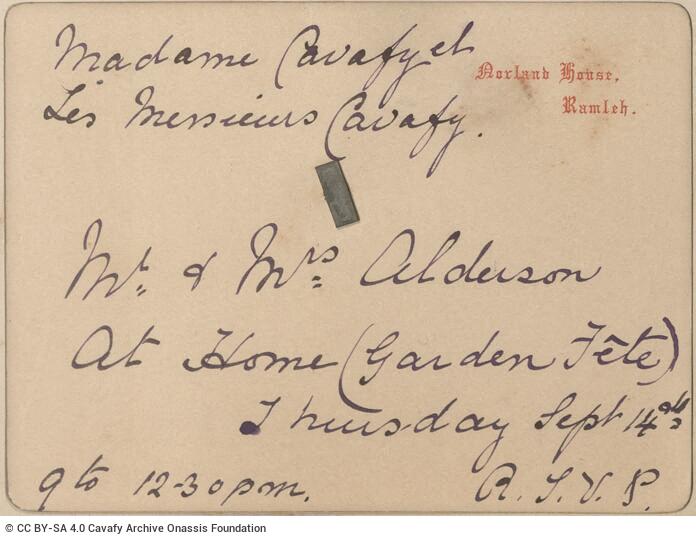 Madame Cavafy et
Norland House,
Les Messieurs Cavafy.
Ramleh.
Mr. & Mrs Alderson
At Home (Garden Fête)
Thursday Sept 14th
9 to 12-30 pm.
R. S. V. P.
© CC BY-SA 4.0 Cavafy Archive Onassis Foundation